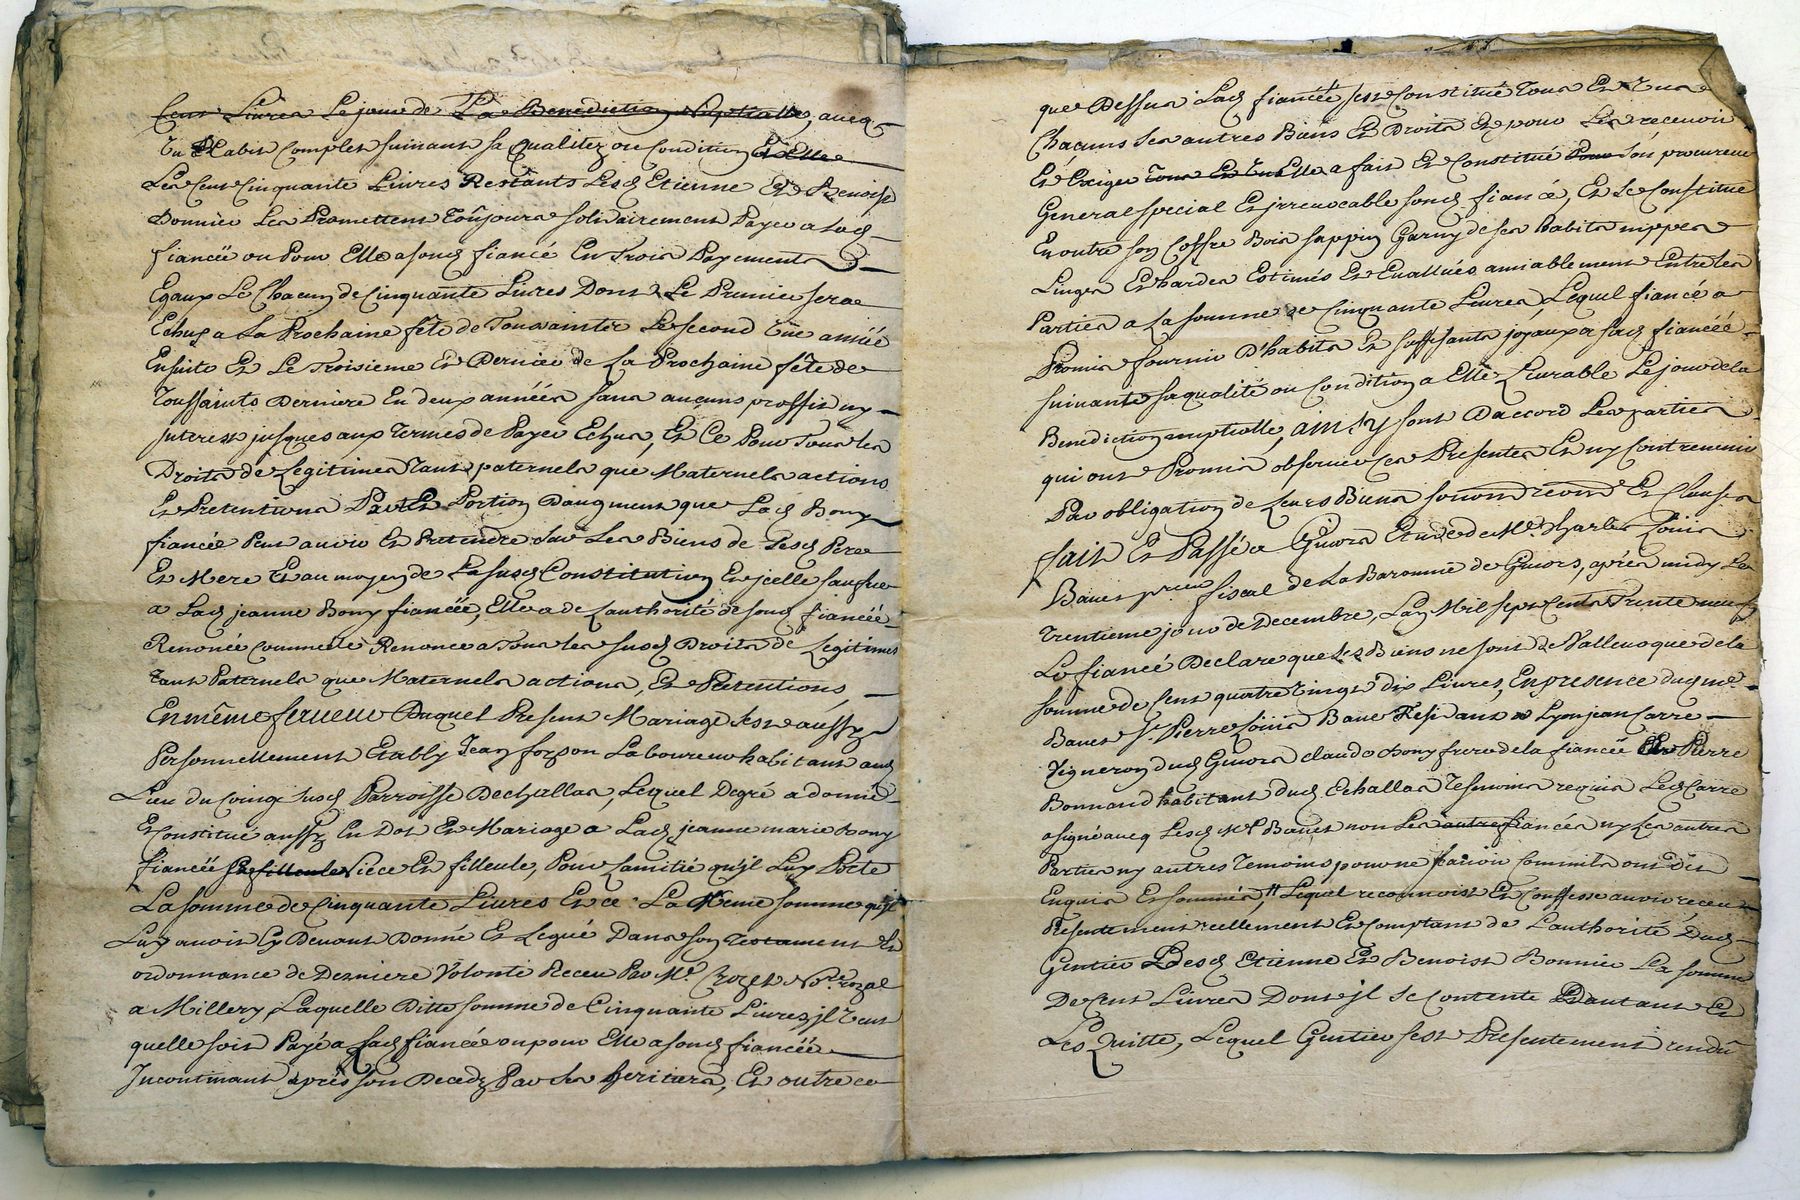 Cent Livres Le jour de La Benediction Nuptialle, avecq
Un Habit Complet suivant sa qualitez ou Condition Et Elle
Les Cent Cinquante Livres Restants Lesd Etienne Et Benoist
Bonnier Les Promettent Toûjours solidairement Payer a lad
fiancëe ou Pour Elle a sond fiancé En Trois Payements
Egaux Le Chacun de Cinquante Livres Dont Le Premier sera
Echus a La Prochaine fête de Toussaintz Le second Une année
Ensuite Et Le Troisieme Et Dernier de La Prochaine fête de
Toussaints Derniere En deux années sans aucuns proffit ny
Interest jusques aux termes de Payer Echus, Et Ce Pour Tous les
Droits de Legitimes Tant paternels que Maternels actions
Et Pretentions Part Et Portion Daugment que Lad Bony
fiancée Peut avoir Et Pretendre Sur Les Biens de Lesd Pere
Et Mere Et au moyen de La susd Constitution Et icelle sauf
a Lad jeanne Bony fiancée, Elle a de Lauthorité de sond fiancéé
Renoncé comme elle Renonce a Tous les susd Droits de Legitimes
Tant Paternels que Maternels actions, Et Pretentions,
En même faveur Duquel Present Mariage sest aussy
Personnellement Etably Jean forson Laboureur habitant aud
Lieu du Coing susd Parroisse Dechallas, Lequel Degré a donné
Et Constitué aussy En Dot Et Mariage a Lad jeanne marie Bony
fiancëe sa filleule Niece Et filleule, Pour Lamitié qu'jl Luy Porte
La somme de Cinquante Livres Et ce La Meme somme qu'jl
Luy avoit Cy Devant Donné Et Legué Dans son Testament Et
ordonnance de Derniere Volonté Receu Par Me Crozet Nore. royal
a Millery, Laquelle Ditte somme de Cinquante Livres jl veut
quelle soit Payé a Lad fiancée ou pour Elle a sond fiancéé
Incontinant après son Decedz Par ses heritiers, Et outre ce
que Dessus Lad fiancéé sest Constitué Tous Et Uns
Chacuns ses autres Biens Et Droits Et pour Les recevoir
Et Exiger Tous Et Un Elle a fait Et Constitué Pour Son procureur
General special Et jrrevocable sond fiancé, Et se Constitue
En outre son Coffre Bois sappin Garny de ses habits nippes
Linges Et hardes Estimés Et Evallués amiablement Entre les
Parties a La somme de Cinquante Livres, Lequel fiancé a
Promis fournir D'habits Et suffisants joyaux a lad fiancéé
suivant sa qualité ou Condition a Elle Livrable Le jour de la
Benediction nuptialle, ainsy sont Daccord Les parties
qui ont Promis observer ces Presentes Et ny Contrevenir
Par obligation de Leurs Biens Et Clauses
fait Et Passé a Givors Etude de Me. Charles Loüis
Bauet procur fiscal de La Baronnie de Givors, après midy Le
Trentieme jour de Decembre, Lan Mil sept Cents Trente neuf
Le fiancé Declare que ses Biens ne sont de Valleur que de la
somme de Cent quatre vingt dix Livres, En presence dud me.
Bauet Sr. Pierre Loüis Bauet Residant a Lyon jean Carre
Vigneron dud Givors claude Bony frere de la fiancée Et Pierre
Bonnand habitant dud Echallas Tesmoins requis Led Carre
a signé avecq Lesd Mrs Bauet non Les autres fiancés ny Les autres
Parties ny autres Temoins pour ne sçavoir Comme ils ont dit
Enquis Et sommés, Lequel reconnoist Et Confesse avoir receu
Presentement reellement Et Comptant de Lauthorité Dud
Gentier Desd Etienne Et Benoist Bonnier La somme
De Cent Livres Dont jl se Contente Dautant Et
Les Quitte, Lequel Gentier sest Presentement rendû